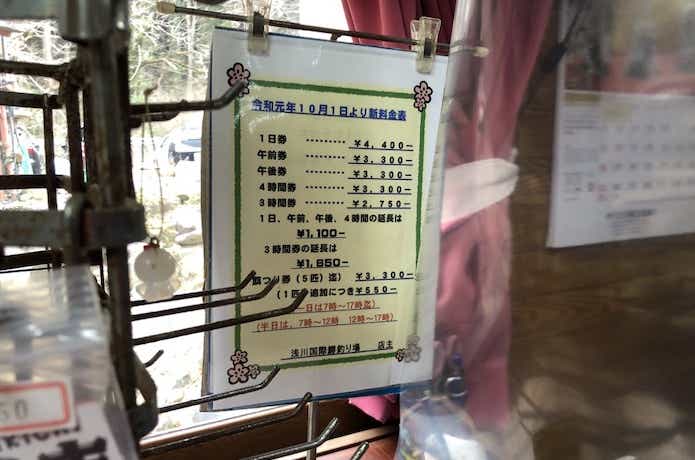 令和元年10月1日より新料金表
1日券 ……… ¥4,400-
午前券 ……… ¥3,300-
午後券 ……… ¥3,300-
4時間券 ……… ¥3,300-
3時間券 ……… ¥2,750-
1日、午前、午後、4時間の延長は
¥1,100-
3時間券の延長は
¥1,650-
つり券(5匹)迄) ¥3,300-
(1匹 追加につき¥550-
一日は7時~17時迄)
(半日は、7時~12時 12時~17時)
浅川国際鱒釣り場 店主
50